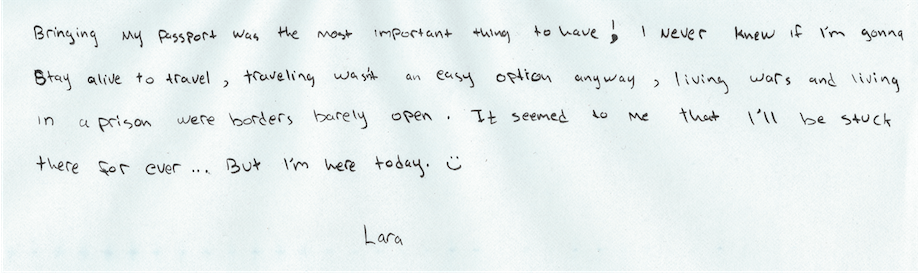 Bringing my passport was the most important thing to have! I never knew if I'm gonna
stay alive to travel, traveling wasn't an easy option anyway, living wars and living
in a prison were borders barely open. It seemed to me that I'll be stuck
there for ever... But I'm here today. :)
Lara